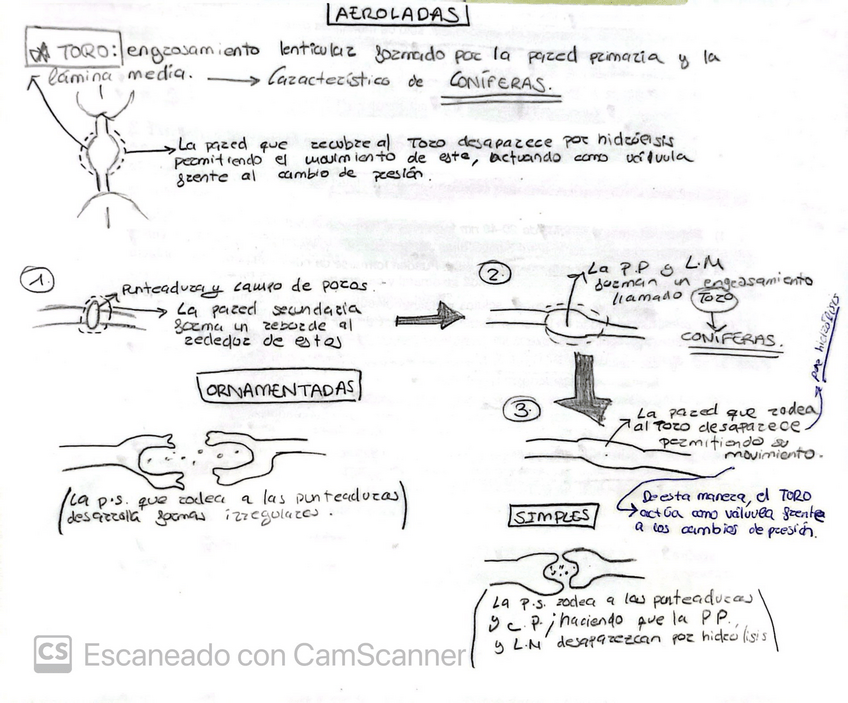 AEROLADAS
* TORO: engrosamiento lenticular formado por la pared primaria y la
lámina media. → Característico de CONÍFERAS.
La pared que recubre al Toro desaparece por hidrólisis
permitiendo el movimiento de este, actuando como válvula
frente al cambio de presión.
1.
Punteadura y campo de poros.
La pared secundaria
forma un reborde al
rededor de estas
2.
La P.P y L.M
forman un engrosamiento
llamado Toro
CONÍFERAS.
ORNAMENTADAS
(La p.s. que rodea a las punteaduras)
desarrolla formas irregulares.
3.
La pared que rodea
al Toro desaparece
permitiendo su
movimiento.
por hidrólisis
De esta manera, el TORO
actúa como válvula frente
a los cambios de presión.
SIMPLES
(La P.S. rodea a las punteaduras
y C.P; haciendo que la P.P.
y L.M desaparezcan por hidrólisis)
CS Escaneado con CamScanner